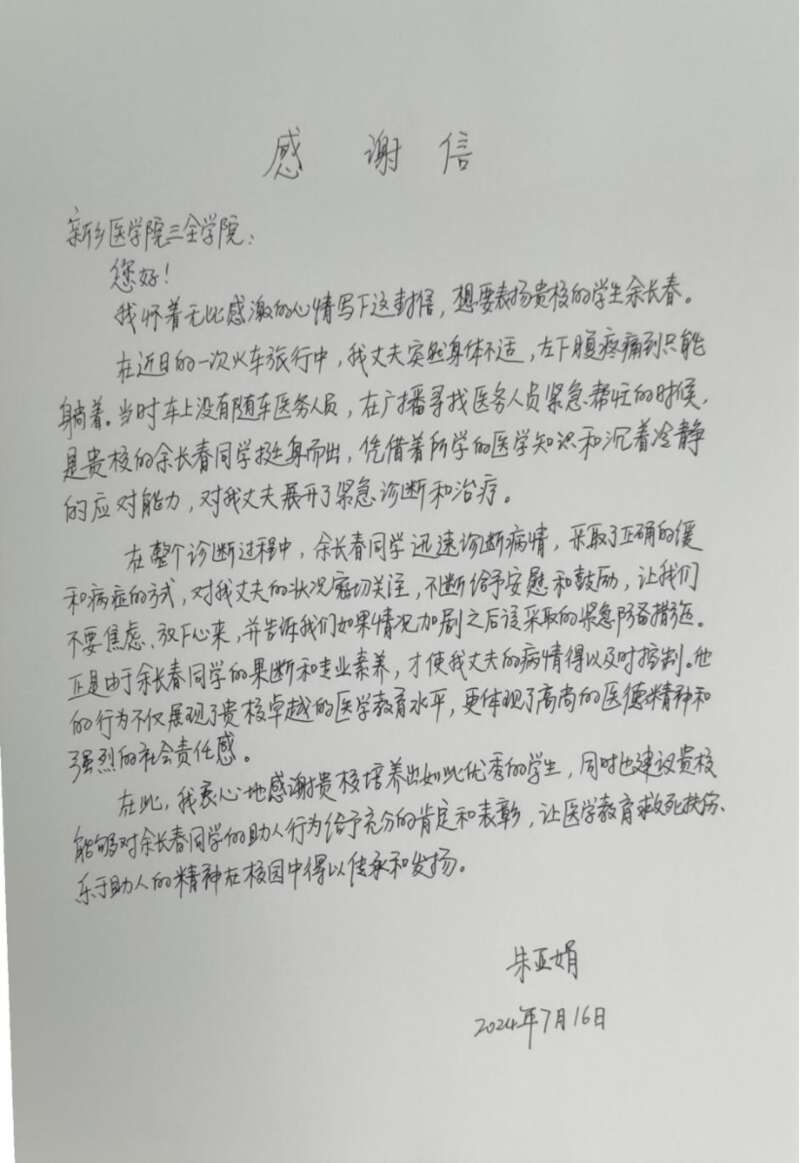 感谢信
新乡医学院三全学院：
您好！
我怀着无比感激的心情写下这封信，想要表扬贵校的学生余长春。
在近日的一次火车旅行中，我丈夫突然身体不适，左下腹疼痛到只能
躺着。当时车上没有随车医务人员，在广播寻找医务人员紧急帮忙的时候，
是贵校的余长春同学挺身而出，凭借着所学的医学知识和沉着冷静
的应对能力，对我丈夫展开了紧急诊断和治疗。
在整个诊断过程中，余长春同学迅速诊断病情，采取了正确的缓
和病症的方式，对我丈夫的状况密切关注，不断给予安慰和鼓励，让我们
不要焦虑、放下心来，并告诉我们如果情况加剧之后该采取的紧急防备措施。
正是由于余长春同学的果断和专业素养，才使我丈夫的病情得以及时控制。他
的行为不仅展现了贵校卓越的医学教育水平，更体现了高尚的医德精神和
强烈的社会责任感。
在此，我衷心地感谢贵校培养出如此优秀的学生，同时也建议贵校
能够对余长春同学的助人行为给予充分的肯定和表彰，让医学教育救死扶伤、
乐于助人的精神在校园中得以传承和发扬。
朱亚娟
2024年7月16日